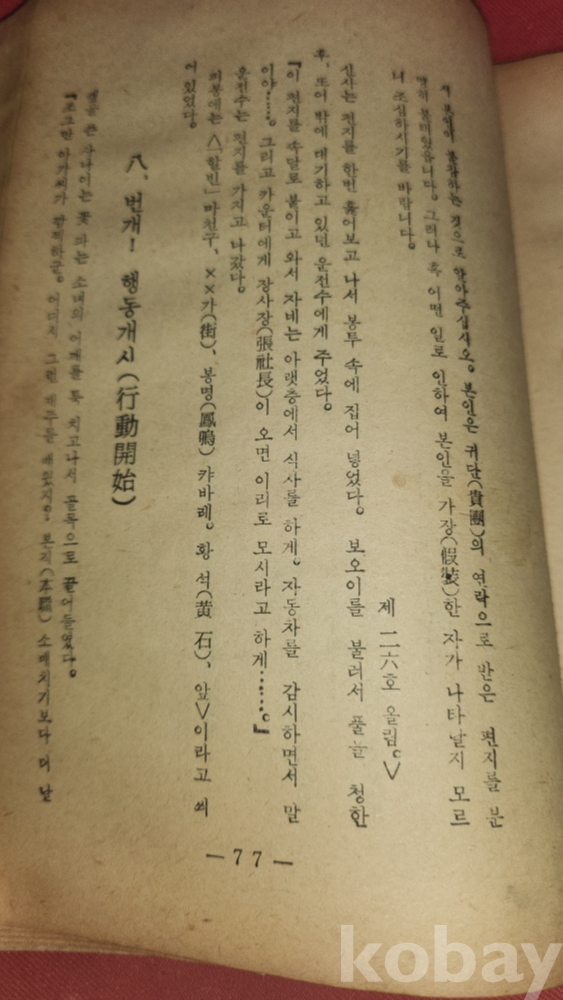 본인은 귀단(貴團)의 연락으로 받은 편지를 분
그러나 혹 어떤 일로 인하여 본인을 가장(假裝)한 자가 나타날지 모르
니 조심하시기를 바랍니다.
제 二六호 올림。>
신사는 편지를 한번 훑어보고 나서 봉투 속에 집어 넣었다. 보오이를 불러서 풀을 청한
후, 또어 밖에 대기하고 있던 운전수에게 주었다。
『이 편지를 속달로 붙이고 와서 자네는 아랫층에서 식사를 하게。자동차를 감시하면서 말
이야……。그리고 카운터에게 장사장(張社長)이 오면 이리로 모시라고 하게……。』
운전수는 편지를 가지고 나갔다。
피봉에는 <「할빈」마천구, ××가(街)、봉명(鳳鳴) 캬바레。황 석(黄 石)、앞>이라고 씌
어 있었다。
八、번개! 행동개시(行動開始)
사나이는 꽃 파는 소녀의 어깨를 툭 치고나서 골목으로 끌어들였다。
『조그만 아가씨가 깜찍하군。어디서 그런 재주를 배웠지? 소매치기보다 더 날
—77—
kobay